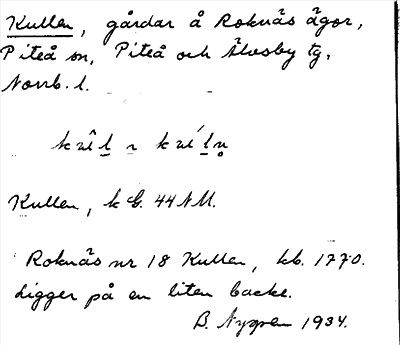 Kullen, gårdar å Roknäs ägor,
Piteå sn, Piteå och Älvsby tg,
Norrb. l.
Kullen, k G. 44 NM.
Roknäs nr 18 Kullen, kb. 1770.
Ligger på en liten backe.
B. Nygren 1934.